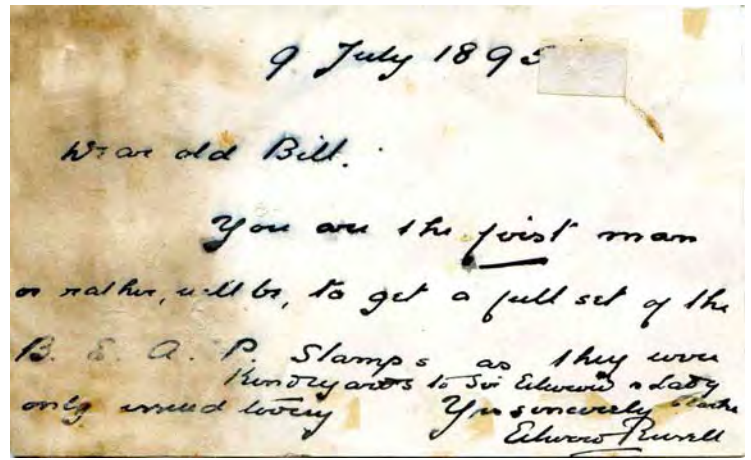 9 July 1895
Dear old Bill.
You are the first man
or rather, will be, to get a full set of the
B. E. A. P. Stamps as they were
Kind regards to Sir Edward & Lady Clarke
only issued today Yrs sincerely
Edward Russell